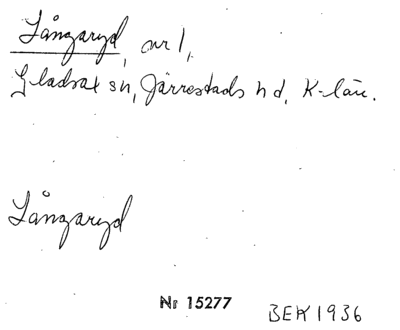 Långaryd, nr 1,
Gladsax sn, Järrestads hd, K-län.
Långaryd
Nr 15277 BEH 1936